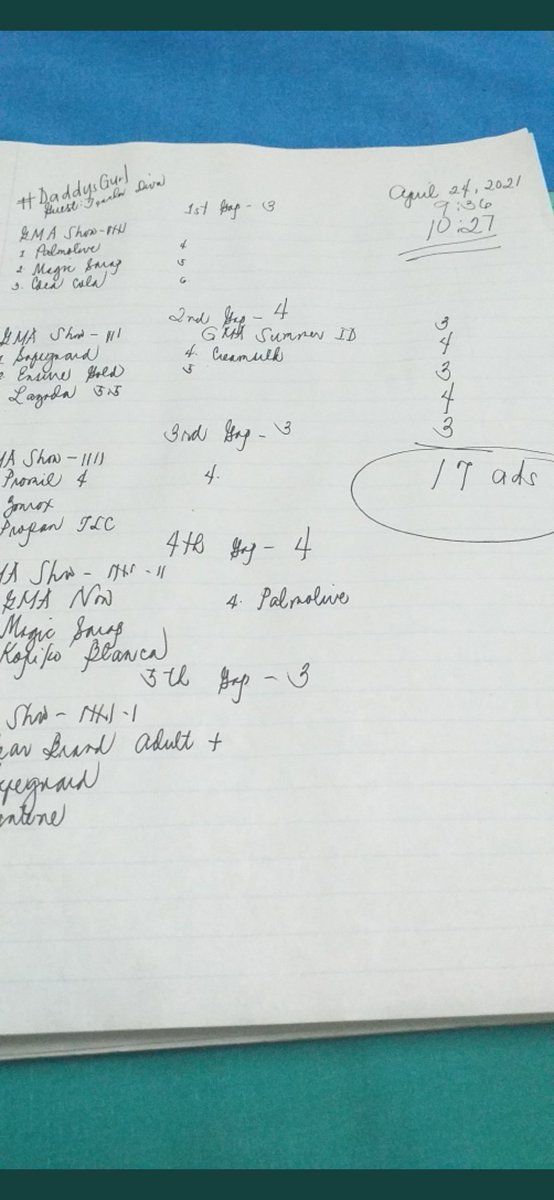 #DaddysGurl
Guest:
1st Gap - 3
April 24, 2021
9:36
10:27
GMA Show -
1 Palmolive
4
2. Magic Sarap
5
3. Coca Cola
6
2nd Gap - 4
GMA Show - III
GMA Summer ID
Safeguard
4. Creamsilk
Ensure Gold
5
Lazada 5.5
3
4
3
4
3
17 ads
3rd Gap - 3
MA Show - IIII
Promil 4
4.
Propan TLC
4th Gap - 4
MA Show -
GMA Now
4. Palmolive
Magic Sarap
Kopiko Blanca
5th Gap - 3
Show -
ear Brand Adult +
feguard
antene